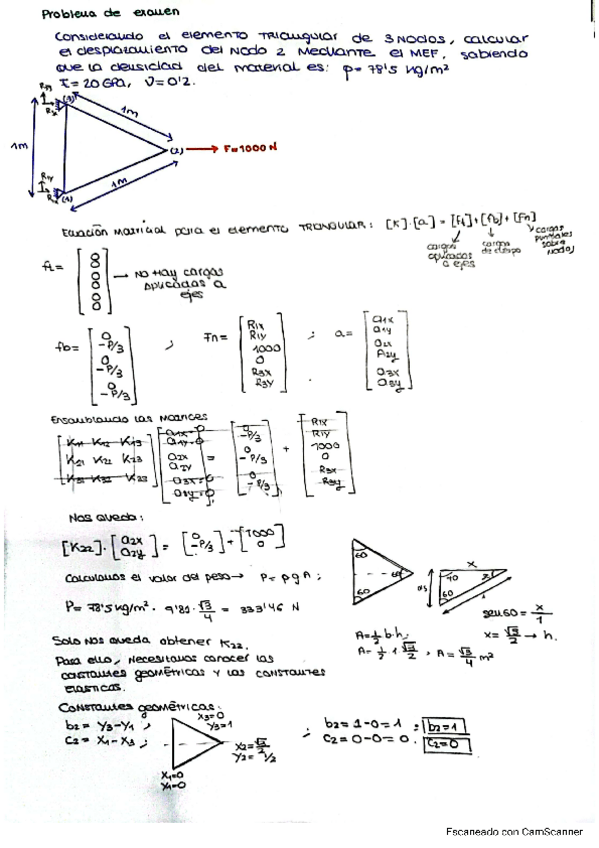 Problema de examen
Considerando el elemento TRIANGULAR de 3 Nodos, calcular
el desplazamiento del Nodo 2 Mediante el MEF, sabiendo
que la densidad del material es: ρ=78'5 kg/m²
E=20GPa, ν=0'2.
1m
R3y
R3x
(3)
1m
(2)
F=1000 N
R1y
R1x
(1)
1m
Ecuación Matricial para el elemento TRIANGULAR: [K]·[a]=[fL]+[fb]+[fn]
cargas aplicadas a ejes
cargas de cuerpo
cargas puntuales sobre nodos
fL= [0 0 0 0 0 0] → No Hay cargas aplicadas a ejes
fb= [0 -P/3 0 -P/3 0 -P/3] ; Fn= [R1x R1y 1000 0 R3x R3y] ; a= [a1x a1y a2x a2y a3x a3y]
Ensamblando las Matrices
[K11 K12 K13 K21 K22 K23 K31 K32 K33] [a1x=0 a1y=0 a2x a2y a3x=0 a3y=0] = [0 -P/3 0 -P/3 0 -P/3] + [R1x R1y 1000 0 R3x R3y]
Nos queda:
[K22]·[a2x a2y] = [0 -P/3] + [1000 0]
Calculamos el valor del peso → P= ρ g A;
P= 78'5 kg/m² · 9'81 · √3/4 = 333'46 N
60
60
60
x
30
60
1
sen60= x/1
x= √3/2 → h.
A=½ b·h;
A= ½ 1 √3/2, A= √3/4 m²
Solo Nos queda obtener K22.
Para ello, necesitamos conocer las
constantes geométricas y las constantes
elásticas.
Constantes geométricas:
b2= y3-y1;
c2= x1-x3;
x3=0
y3=1
x2=√3/2
y2=1/2
x1=0
y1=0
; b2=1-0=1; b2=1
c2=0-0=0. c2=0
Escaneado con CamScanner